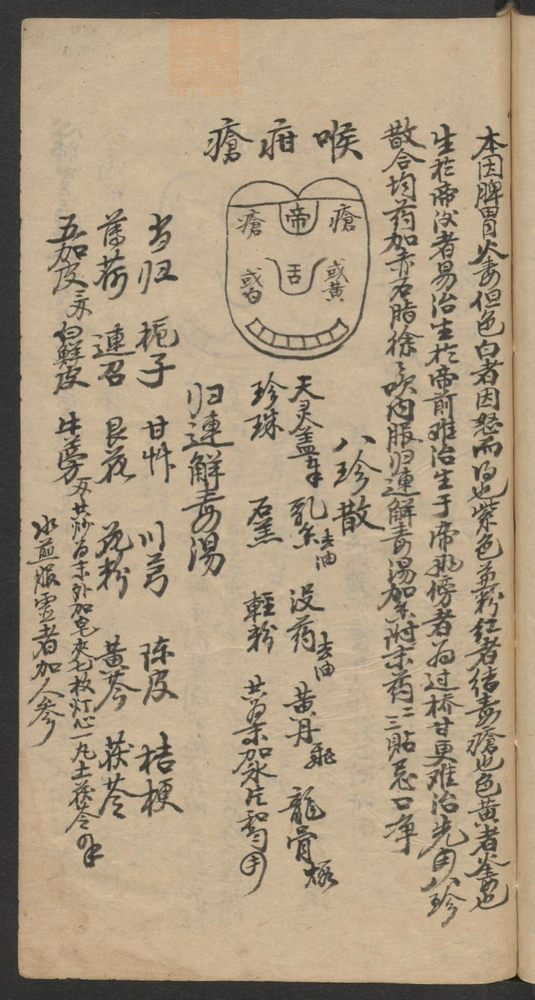 本因脾胃火毒但色白者因怒而白也紫色兼粉红者结毒瘡也色黄者火毒也
生於帝後者易治生於帝前难治生于帝兩傍者为过桥甘更难治先用八珍
散合均药加赤石脂徐ミ吹内服归連解毒湯加附末药二三贴忌口净
喉疳瘡
瘡 帝 瘡
或白 舌 或黄
八珍散
天灵盖 乳香去油 没药去油 黄丹飛 龍骨煅
珍珠 石羔 輕粉 共为末加冰片和匀用
归連解毒湯
当归 栀子 甘草 川芎 陈皮 桔梗
薄荷 連召 艮花 花粉 黄芩 茯苓
五加皮 白鮮皮 牛蒡 共炒为末外加皂夾七枚灯心一丸土茯苓
水煎服虚者加人参